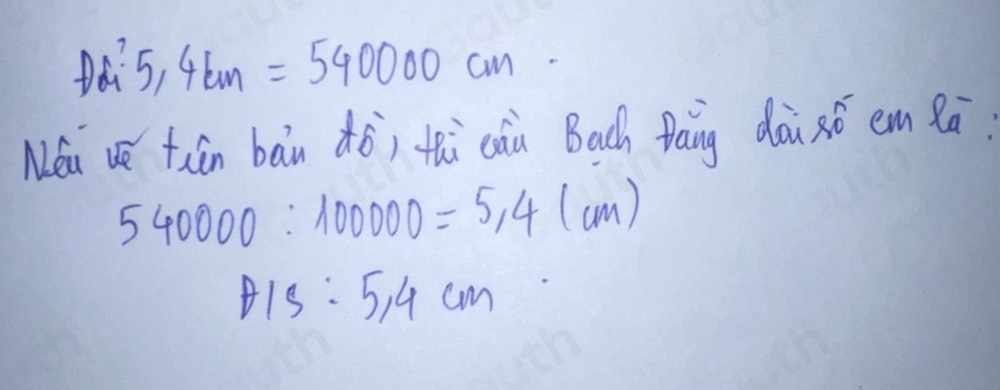 Đổi 5,4 km = 540000 cm .
Nếu vẽ trên bản đồ, thì cầu Bạch Đằng dài số cm là :
540000 : 100000 = 5,4 (cm)
Đ/S : 5,4 cm .